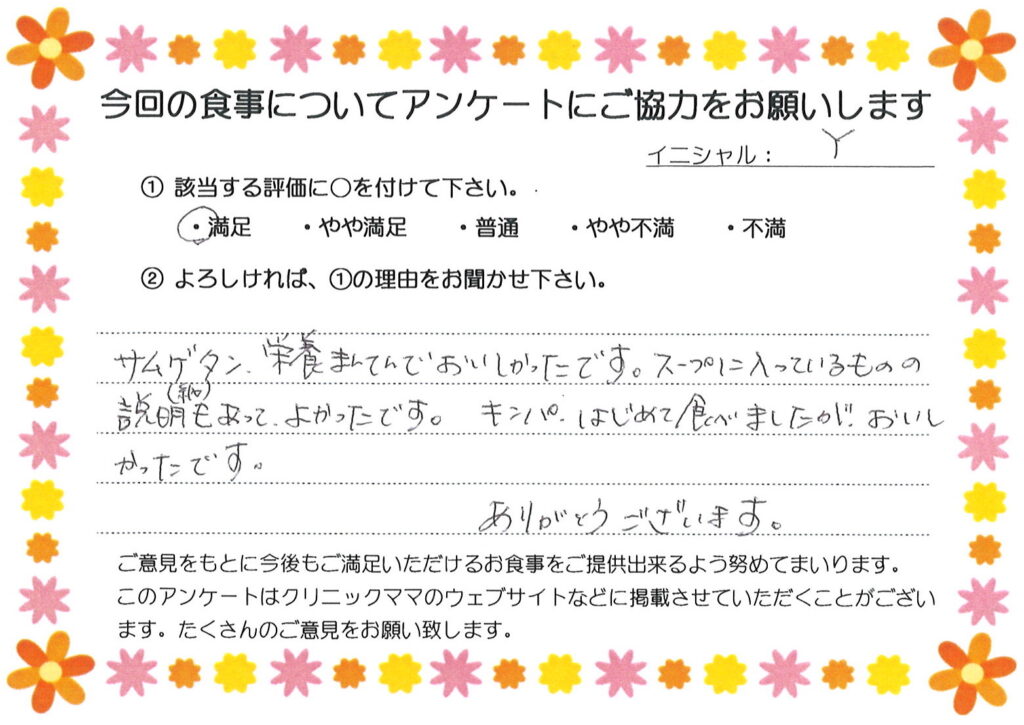 今回の食事についてアンケートにご協力をお願いします
イニシャル： Y
① 該当する評価に〇を付けて下さい。
・満足 ・やや満足 ・普通 ・やや不満 ・不満
② よろしければ、①の理由をお聞かせ下さい。
サムゲタン、栄養まんてんでおいしかったです。スープに入っているものの
説明(紙)もあって、よかったです。 キンパ、はじめて食べましたが、おいし
かったです。
ありがとうございます。
ご意見をもとに今後もご満足いただけるお食事をご提供出来るよう努めてまいります。
このアンケートはクリニックママのウェブサイトなどに掲載させていただくことがござい
ます。たくさんのご意見をお願い致します。